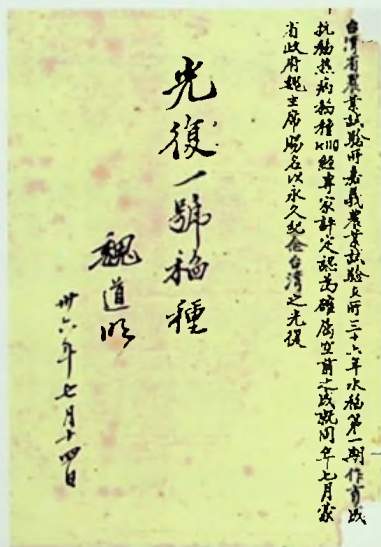 台灣省農業試驗所嘉義農業試驗支所三十六年水稻第一期作育成
抗稻熱病稻種K110經專家評定認為確屬空前之成就同年七月蒙
省政府魏主席賜名以永久紀念台灣之光復
光復一號稻種
魏道明
卅六年七月十四日